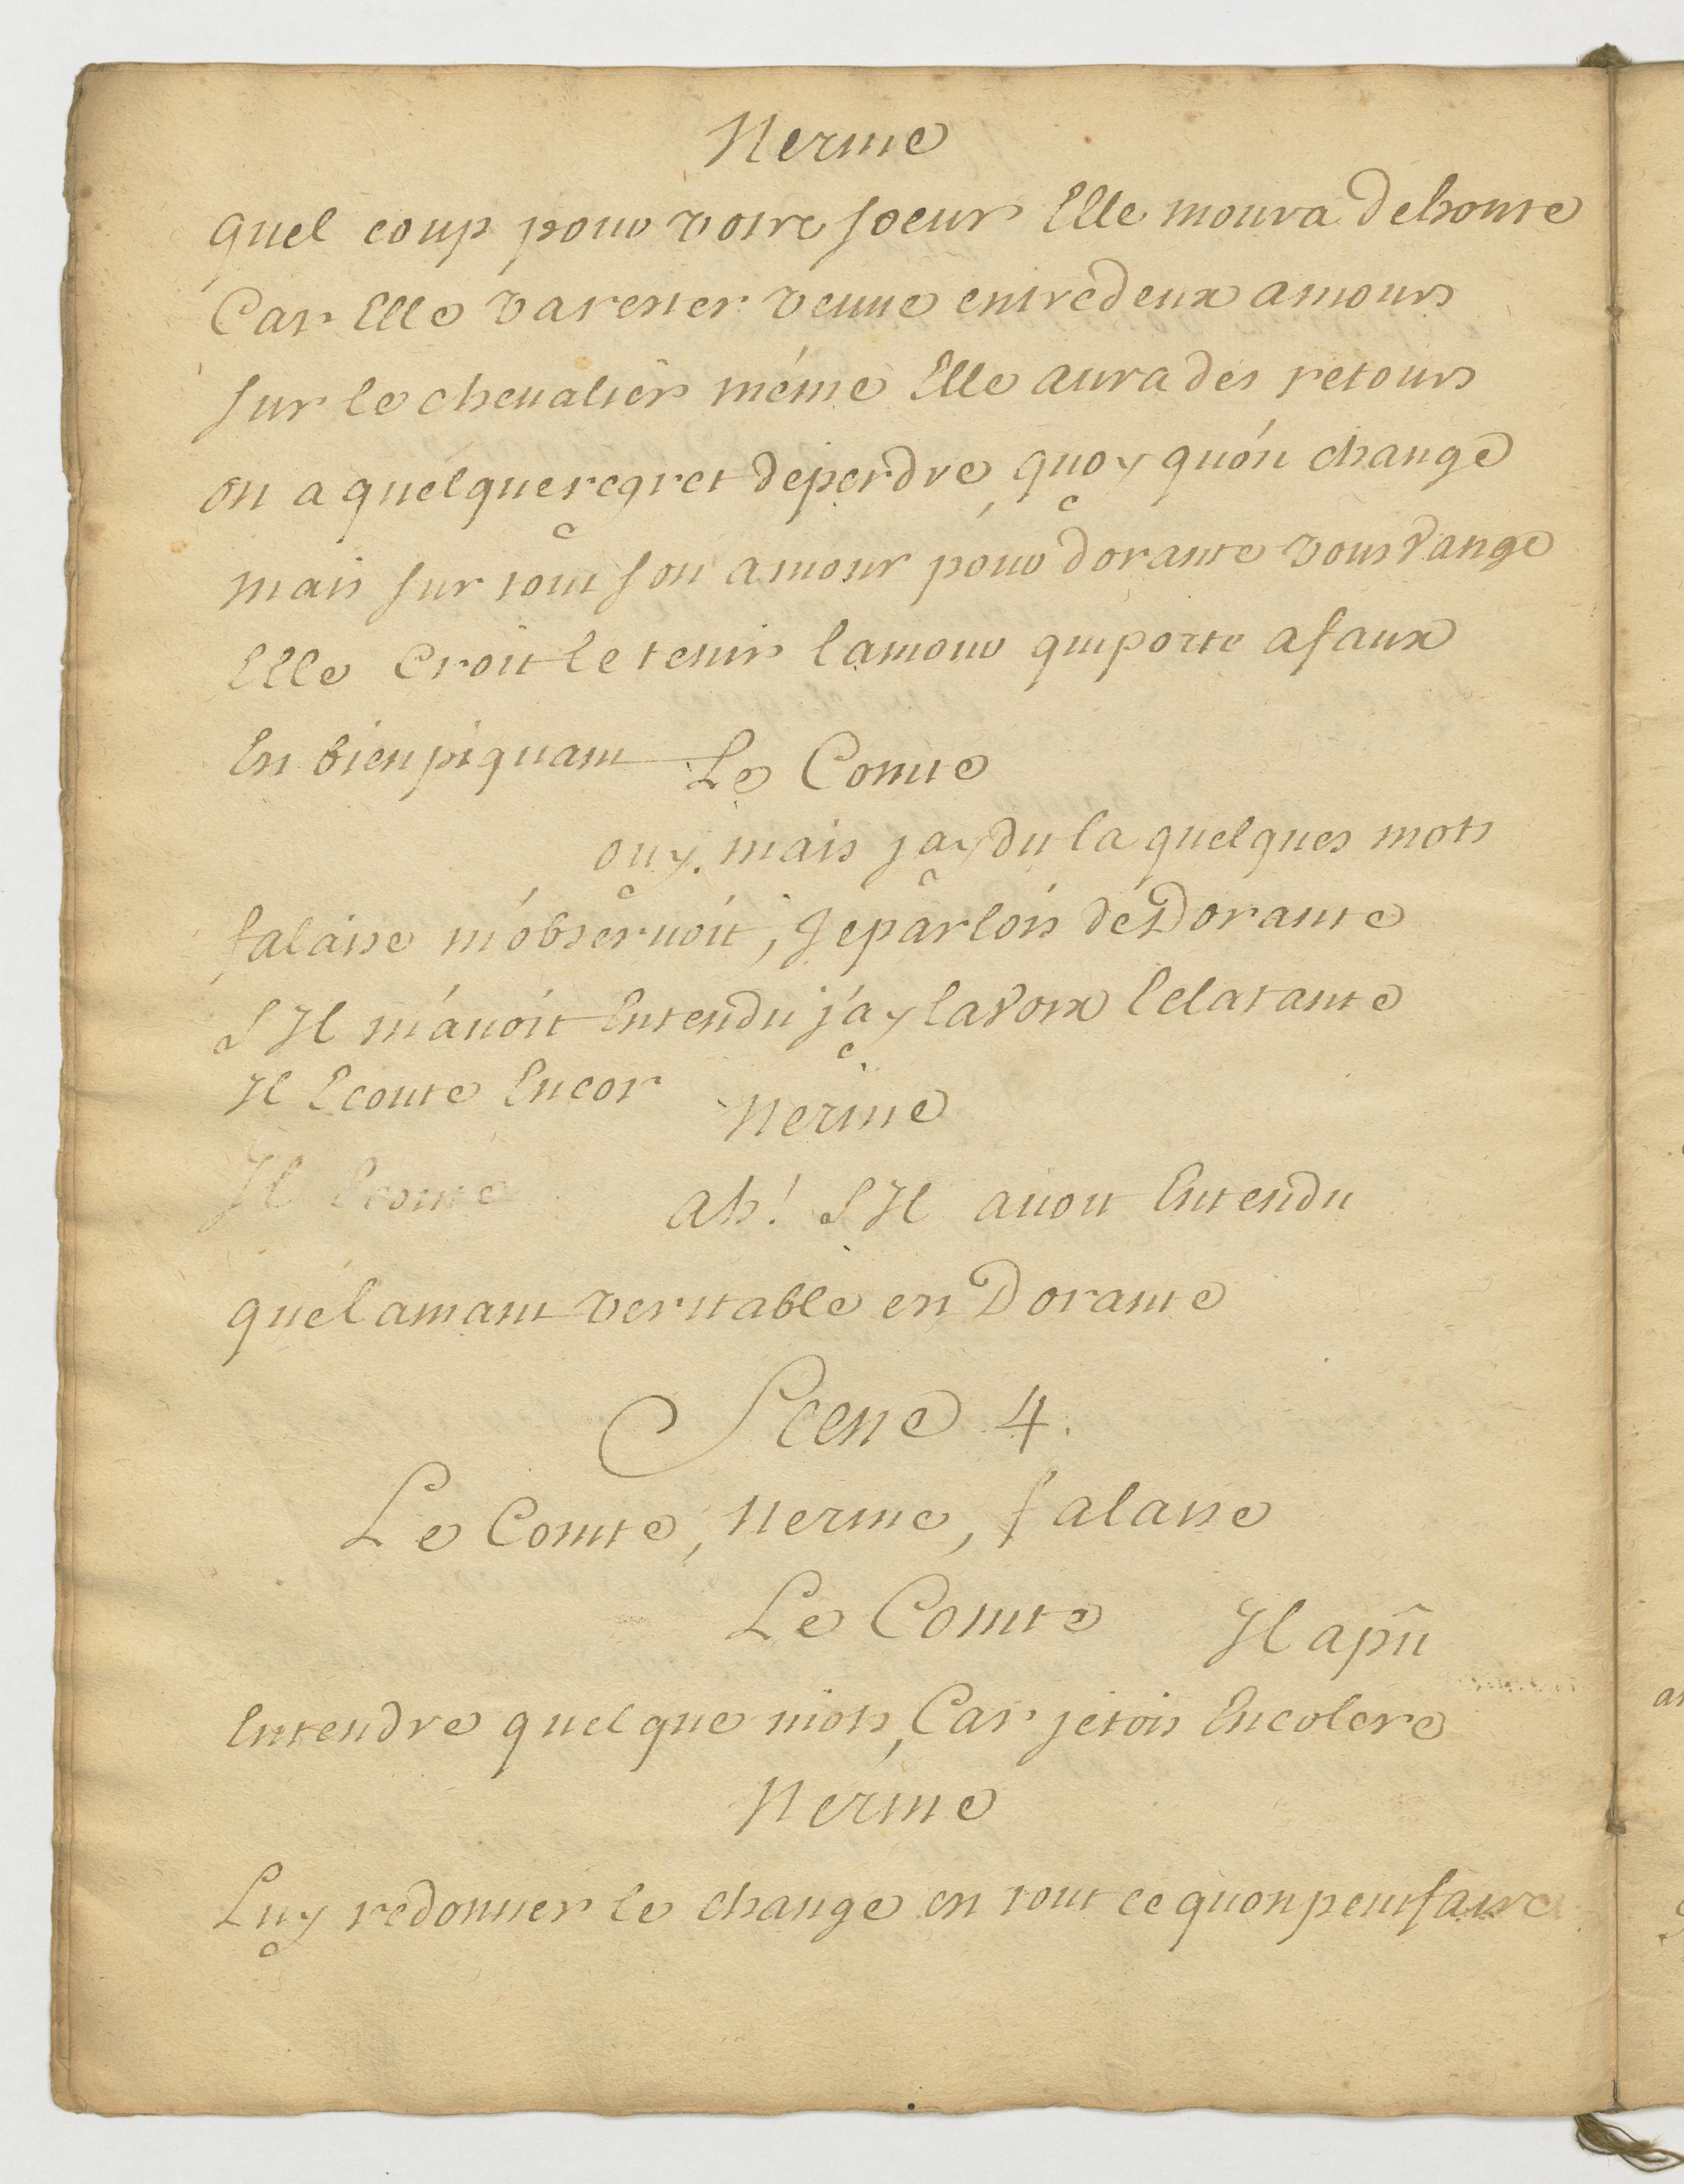 Nerine
quel coup pour votre soeur Elle moura de honte
Car Elle va rester veuue entre deux amours
sur le cheualier méme Elle aura des retours
on a quelque regret de perdre, quoy qu'on change
mais sur tout son amour pour dorante vous vange
Elle Croit le tenir l'amour qui porte a faux
Est bien piquant
Le Comte
ouy. mais j'ay du la quelques mots
falaise m'obseruoit, Je parlois de Dorante
S Il m'auoit Entendu j'ay la voix Eclatante
Il Ecoute Encor
Nerine
Il Ecoute
ah! S Il auoit Entendu
quel amant veritable est Dorante
Scene 4.
Le Comte, Nerine, falaise
Le Comte
Il a pû
Entendre quelque mots, Car jetois En colere
Nerine
Luy redonner le change est tout ce quon peut faire